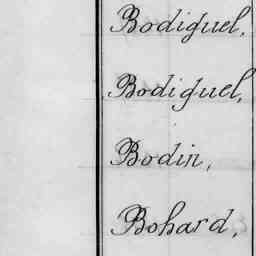 Bodiguel,
Bodiguel,
Bodin,
Bohard,